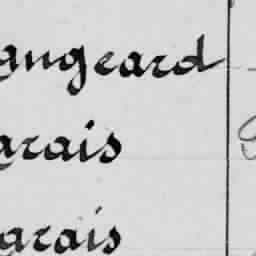 angeard
arais
arais